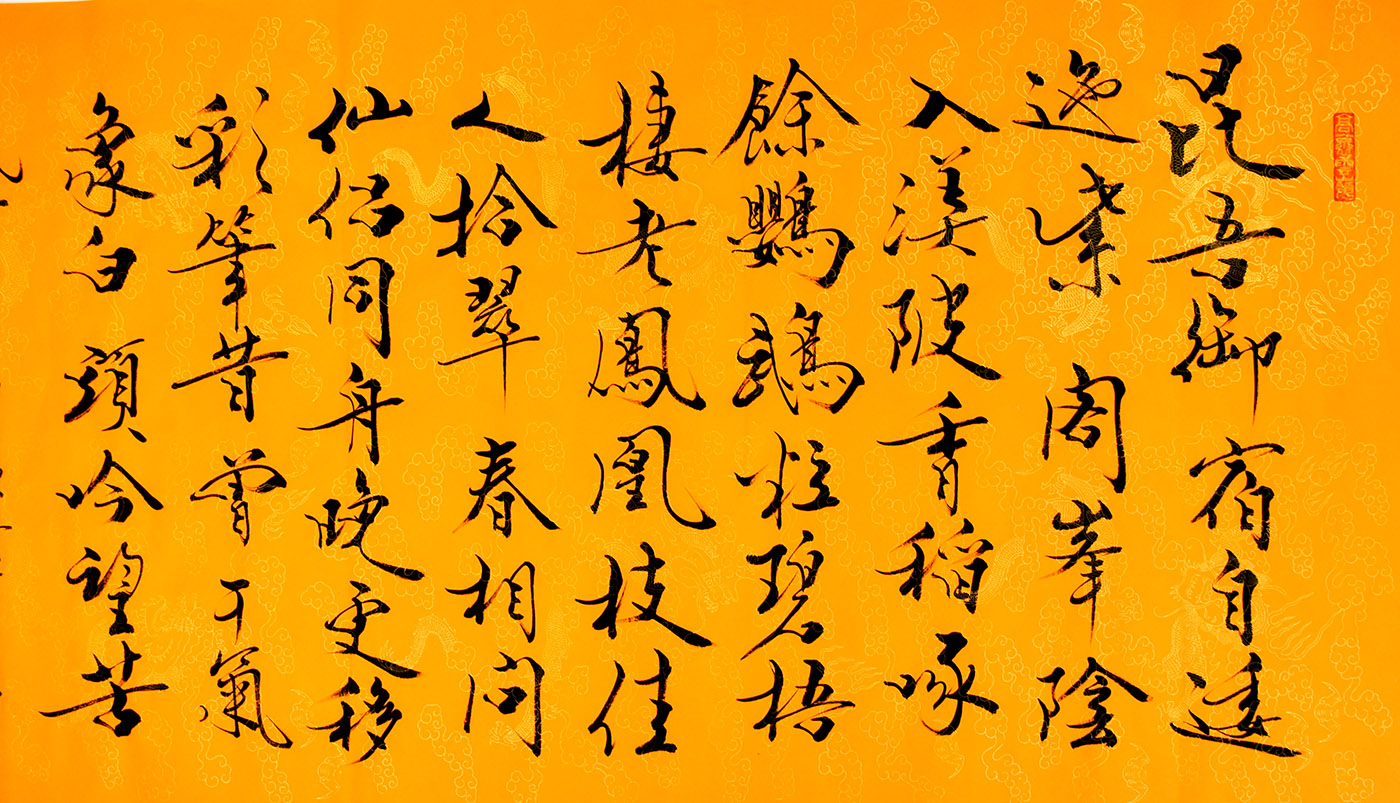 昆吾御宿自逶
迤紫閣峯陰
入渼陂香稻啄
餘鸚鵡粒碧梧
棲老鳳凰枝佳
人拾翠春相問
仙侶同舟晚更移
彩筆昔曾干氣
象白頭吟望苦